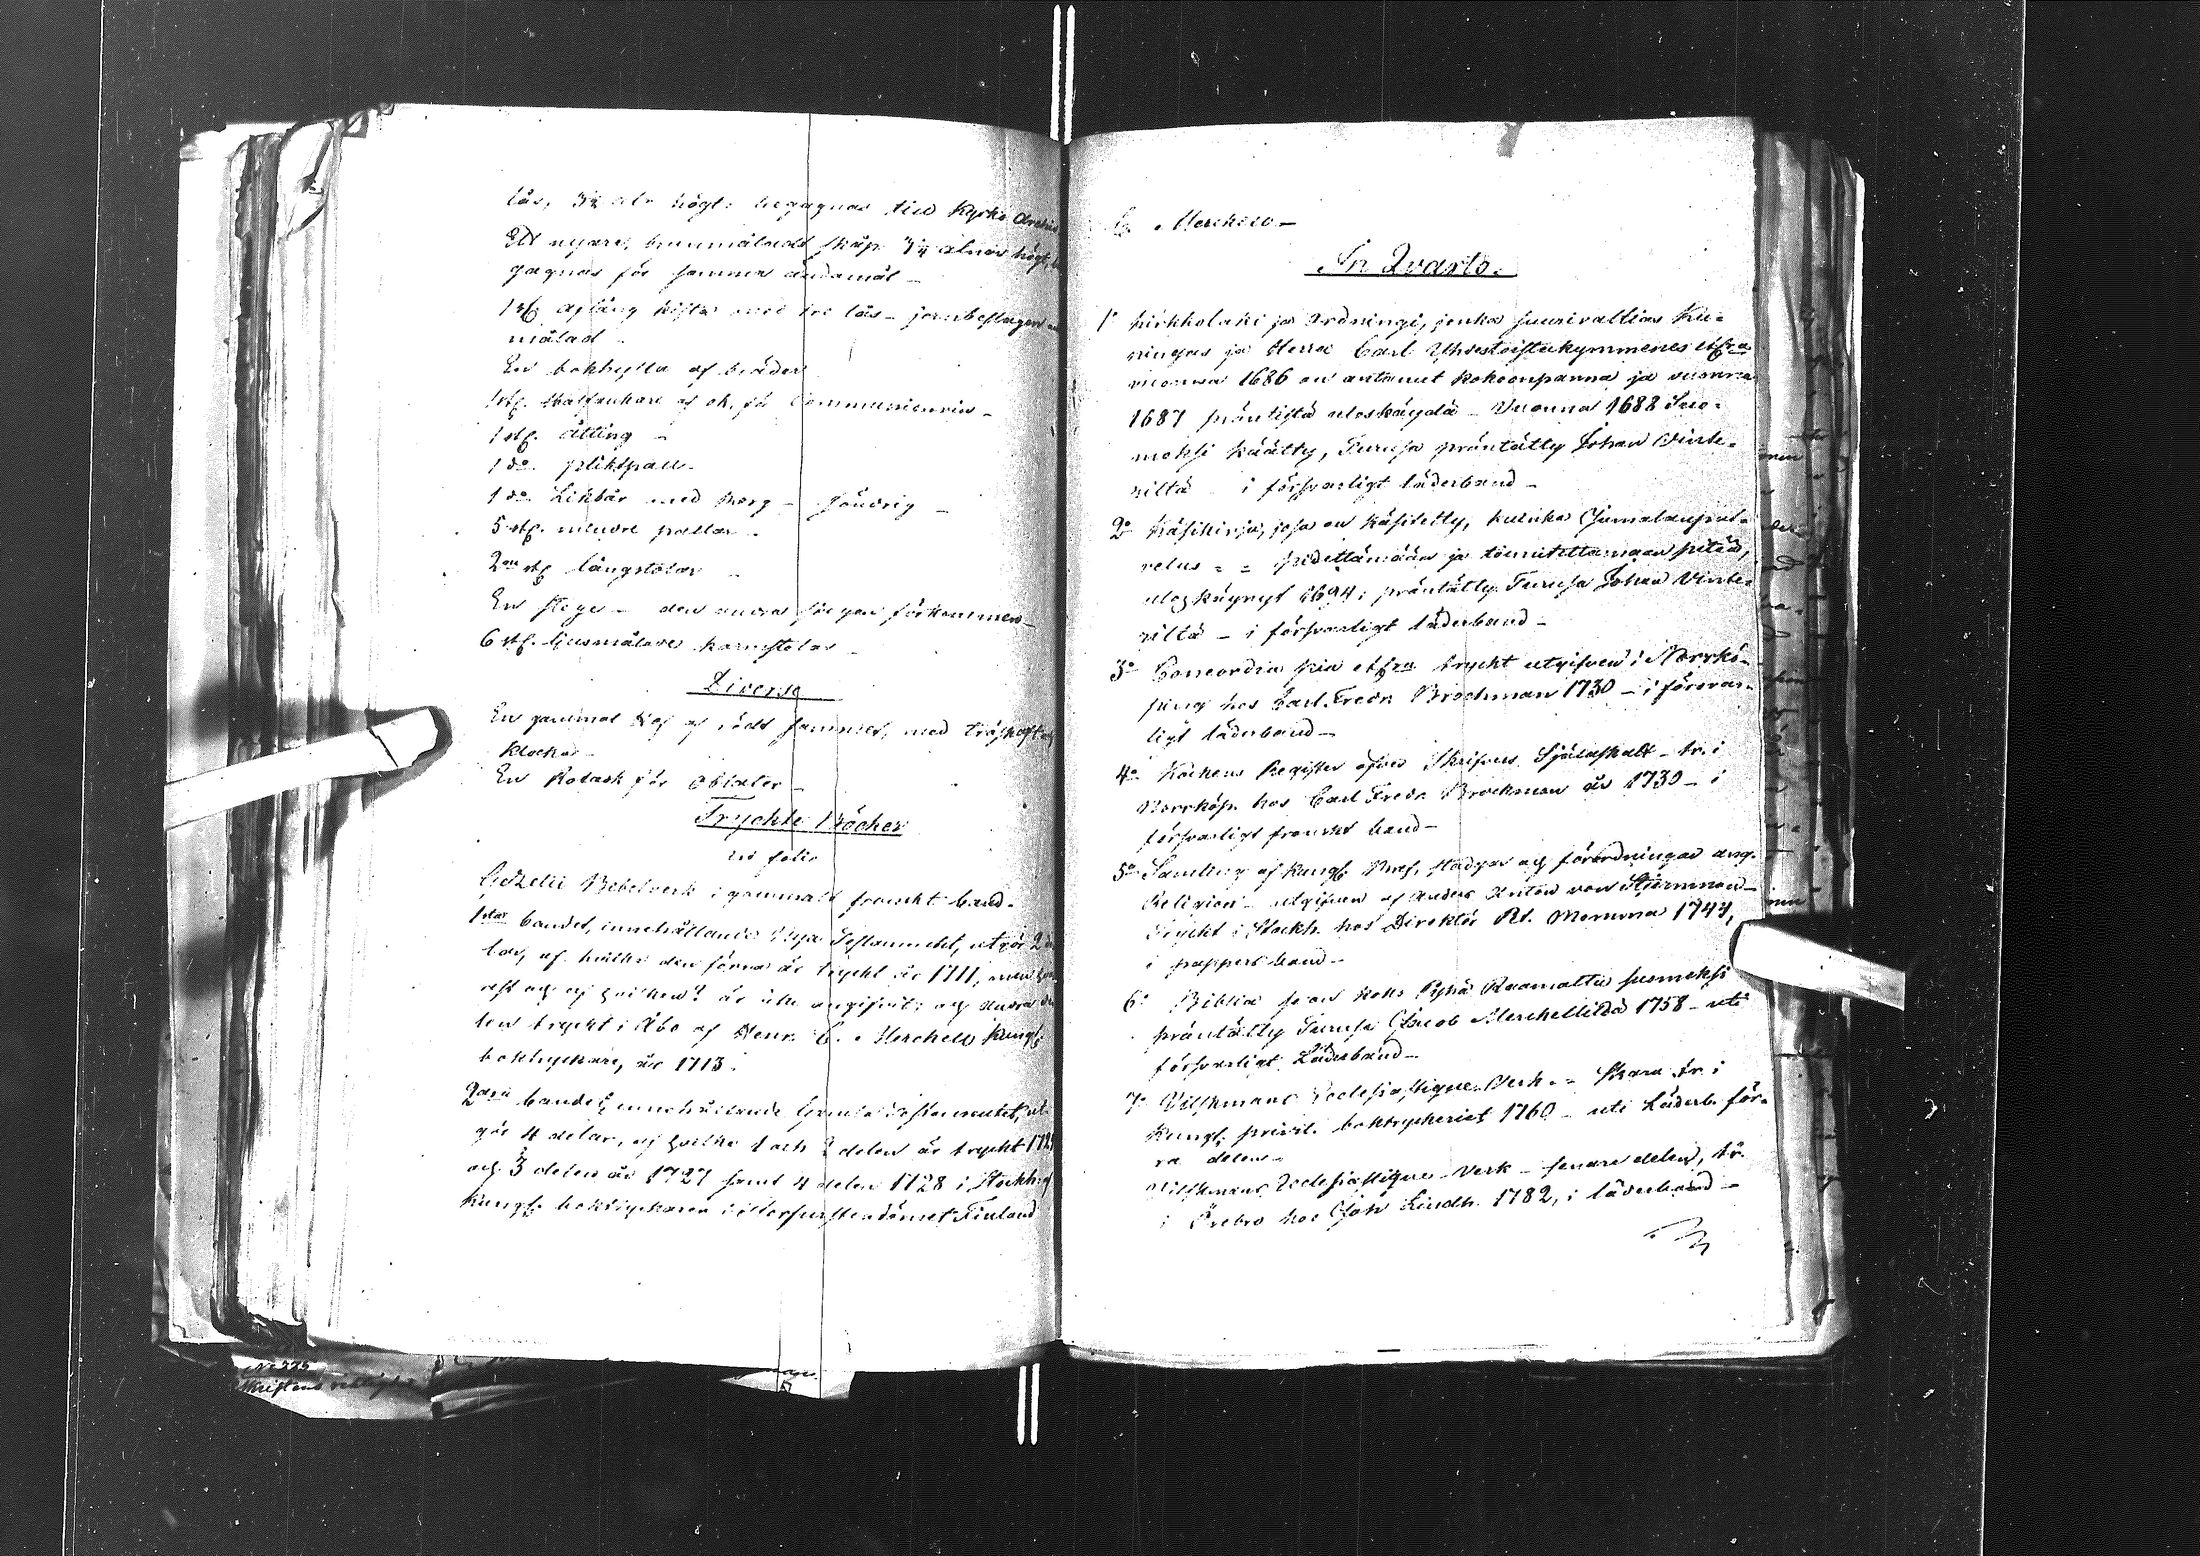 lås, 3¼ aln högt: begagnas till Kyrko Archiv
Ett nyare, brunmåladt skåp 3¼ alnar högt, be
gagnas för samma ändamål –
1 st. aflång kista med tre lås – jernbeslagen
målad –
En bokhylla af bräder
1 st. af ek, för Communionvin –
1 st. åtting –
1 do. pliktpall –
1 do. Likbår med korg –
5 st. mindre pallar –
2 st. långstolar –
En stege – den andra förkommen –
6 st. ljusmålade karmstolar –
Diverse
En gammal Håf af rödt sammet, med träskaft
klocka –
En Kodask för oblater –
Tryckte Böcker
in folio
Gezelii Bibelverk i gammalt franskt band –
1sta bandet, innehållande Nya Testamentet, utgör 2
lar, af hvilka den förra är tryckt år 1711, men
est och af hvilken? är icke angifvit; och andra de
len tryckt i Åbo af Henr. C. Merckell, Kungl.
boktryckare, år 1713.
2dra bandet, innehållande Gamla Testamentet, ut
gör 4 delar, af hvilka 1 och 2 delen är tryckt 172
och 3 delen år 1727 samt 4 delen 1728 i Stockh. af
Kungl. boktryckaren i Storfurstendömet Finland
Merckell –
In Qvarto.
1o Kirkkolaki ja Ordningi, jonka Suurivaltias Ku-
ningas ja Herra Carl Yhdestoistakymmenes etc.
vuonna 1686 on antanut kokoonpanna ja vuonna
1687 präntistä uloskäydä – Vuonna 1688 Suo-
meksi käätty, Turusa präntätty Johan Winte-
riltä – i försvarligt läderband –
2o Käsikirja, josa on käsitetty, kuinka Jumalanpal-
velus – – pidettämään ja toimitettaman pitää,
uloskäynyt 1694; präntätty Turusa Johan Winte-
riltä – i försvarligt läderband –
3o Concordia pia etc. tryckt utgifven i Norrkö-
ping hos Carl Fredr. Brockman 1730 – i försvar-
ligt läderband –
4o Register öfver Skrifvens Själaskatt – tr. i
Norrköp. hos Carl Fredr. Brockman år 1730 – i
försvarligt franskt band –
5o Samling af Kungl. Bref, stadgar och förordningar ang.
Religion – utgifven af Anders Anton von Stiernman –
Tryckt i Stockh. hos Direktör Pet. Momma 1744,
i pappers band –
6o Biblia se on Koko Pyhä Raamattu suomeksi
präntätty Turusa Jacob Merckelliltä 1758 – uti
försvarligt Läderband –
7o Wilskmans Ecclesiastique Verk – – Skara tr. i
Kungl. privil. boktryckeriet 1760 – uti Läderb. för-
ra delen –
Wilskmans Ecclesiastique Verk – senare delen, tr.
i Örebro hos Joh. Lindh. 1782, i läderband –